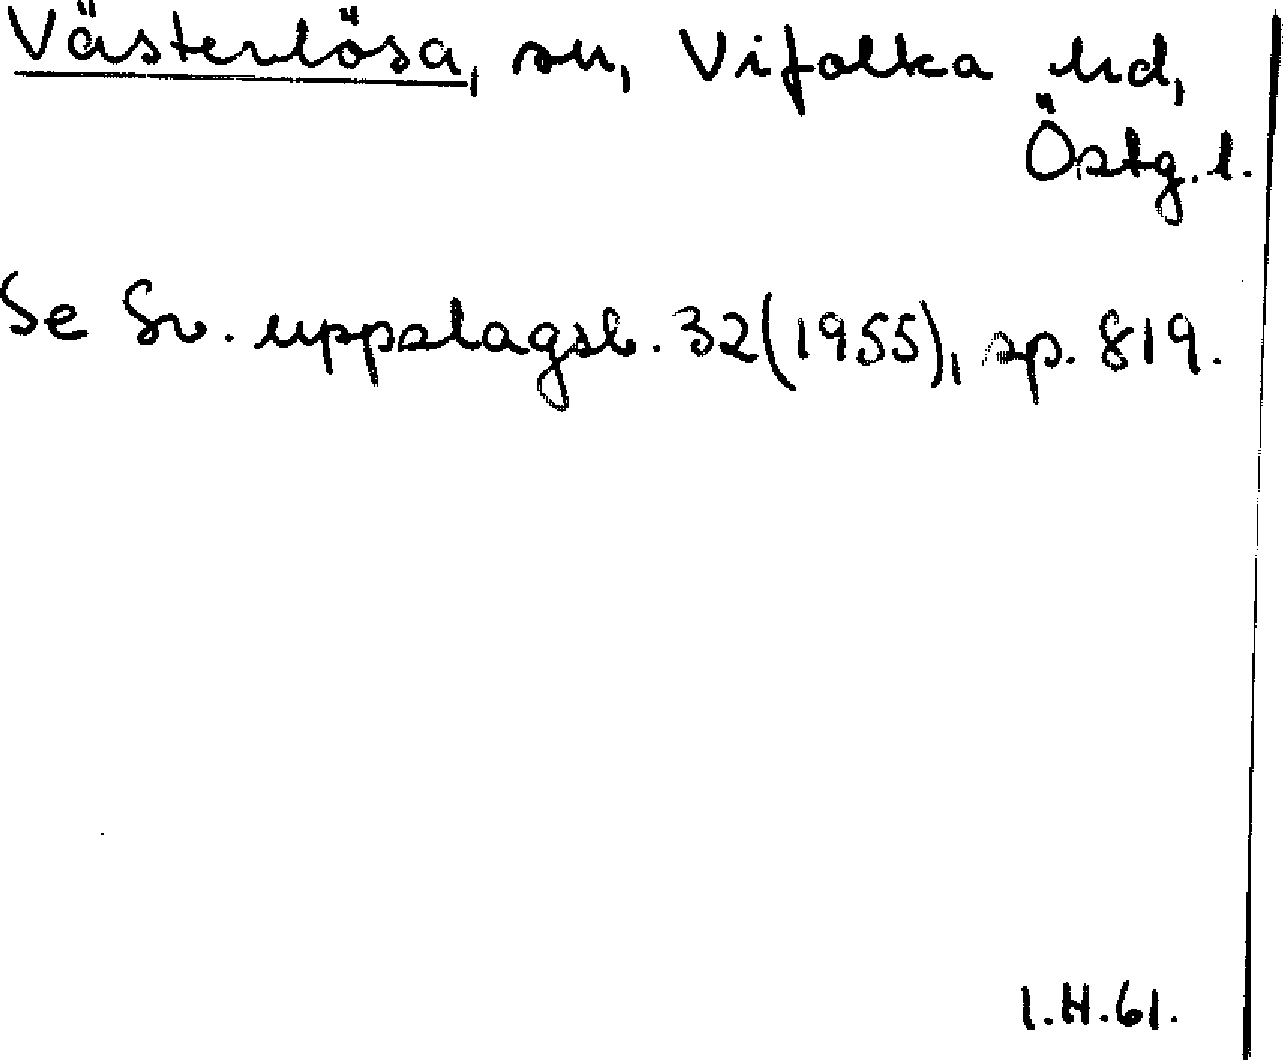 Västerlösa, sn, Vifolka hd,
Östg. l.
Se Sv. uppslagsb. 32 (1955), sp. 819.
I.H.61.